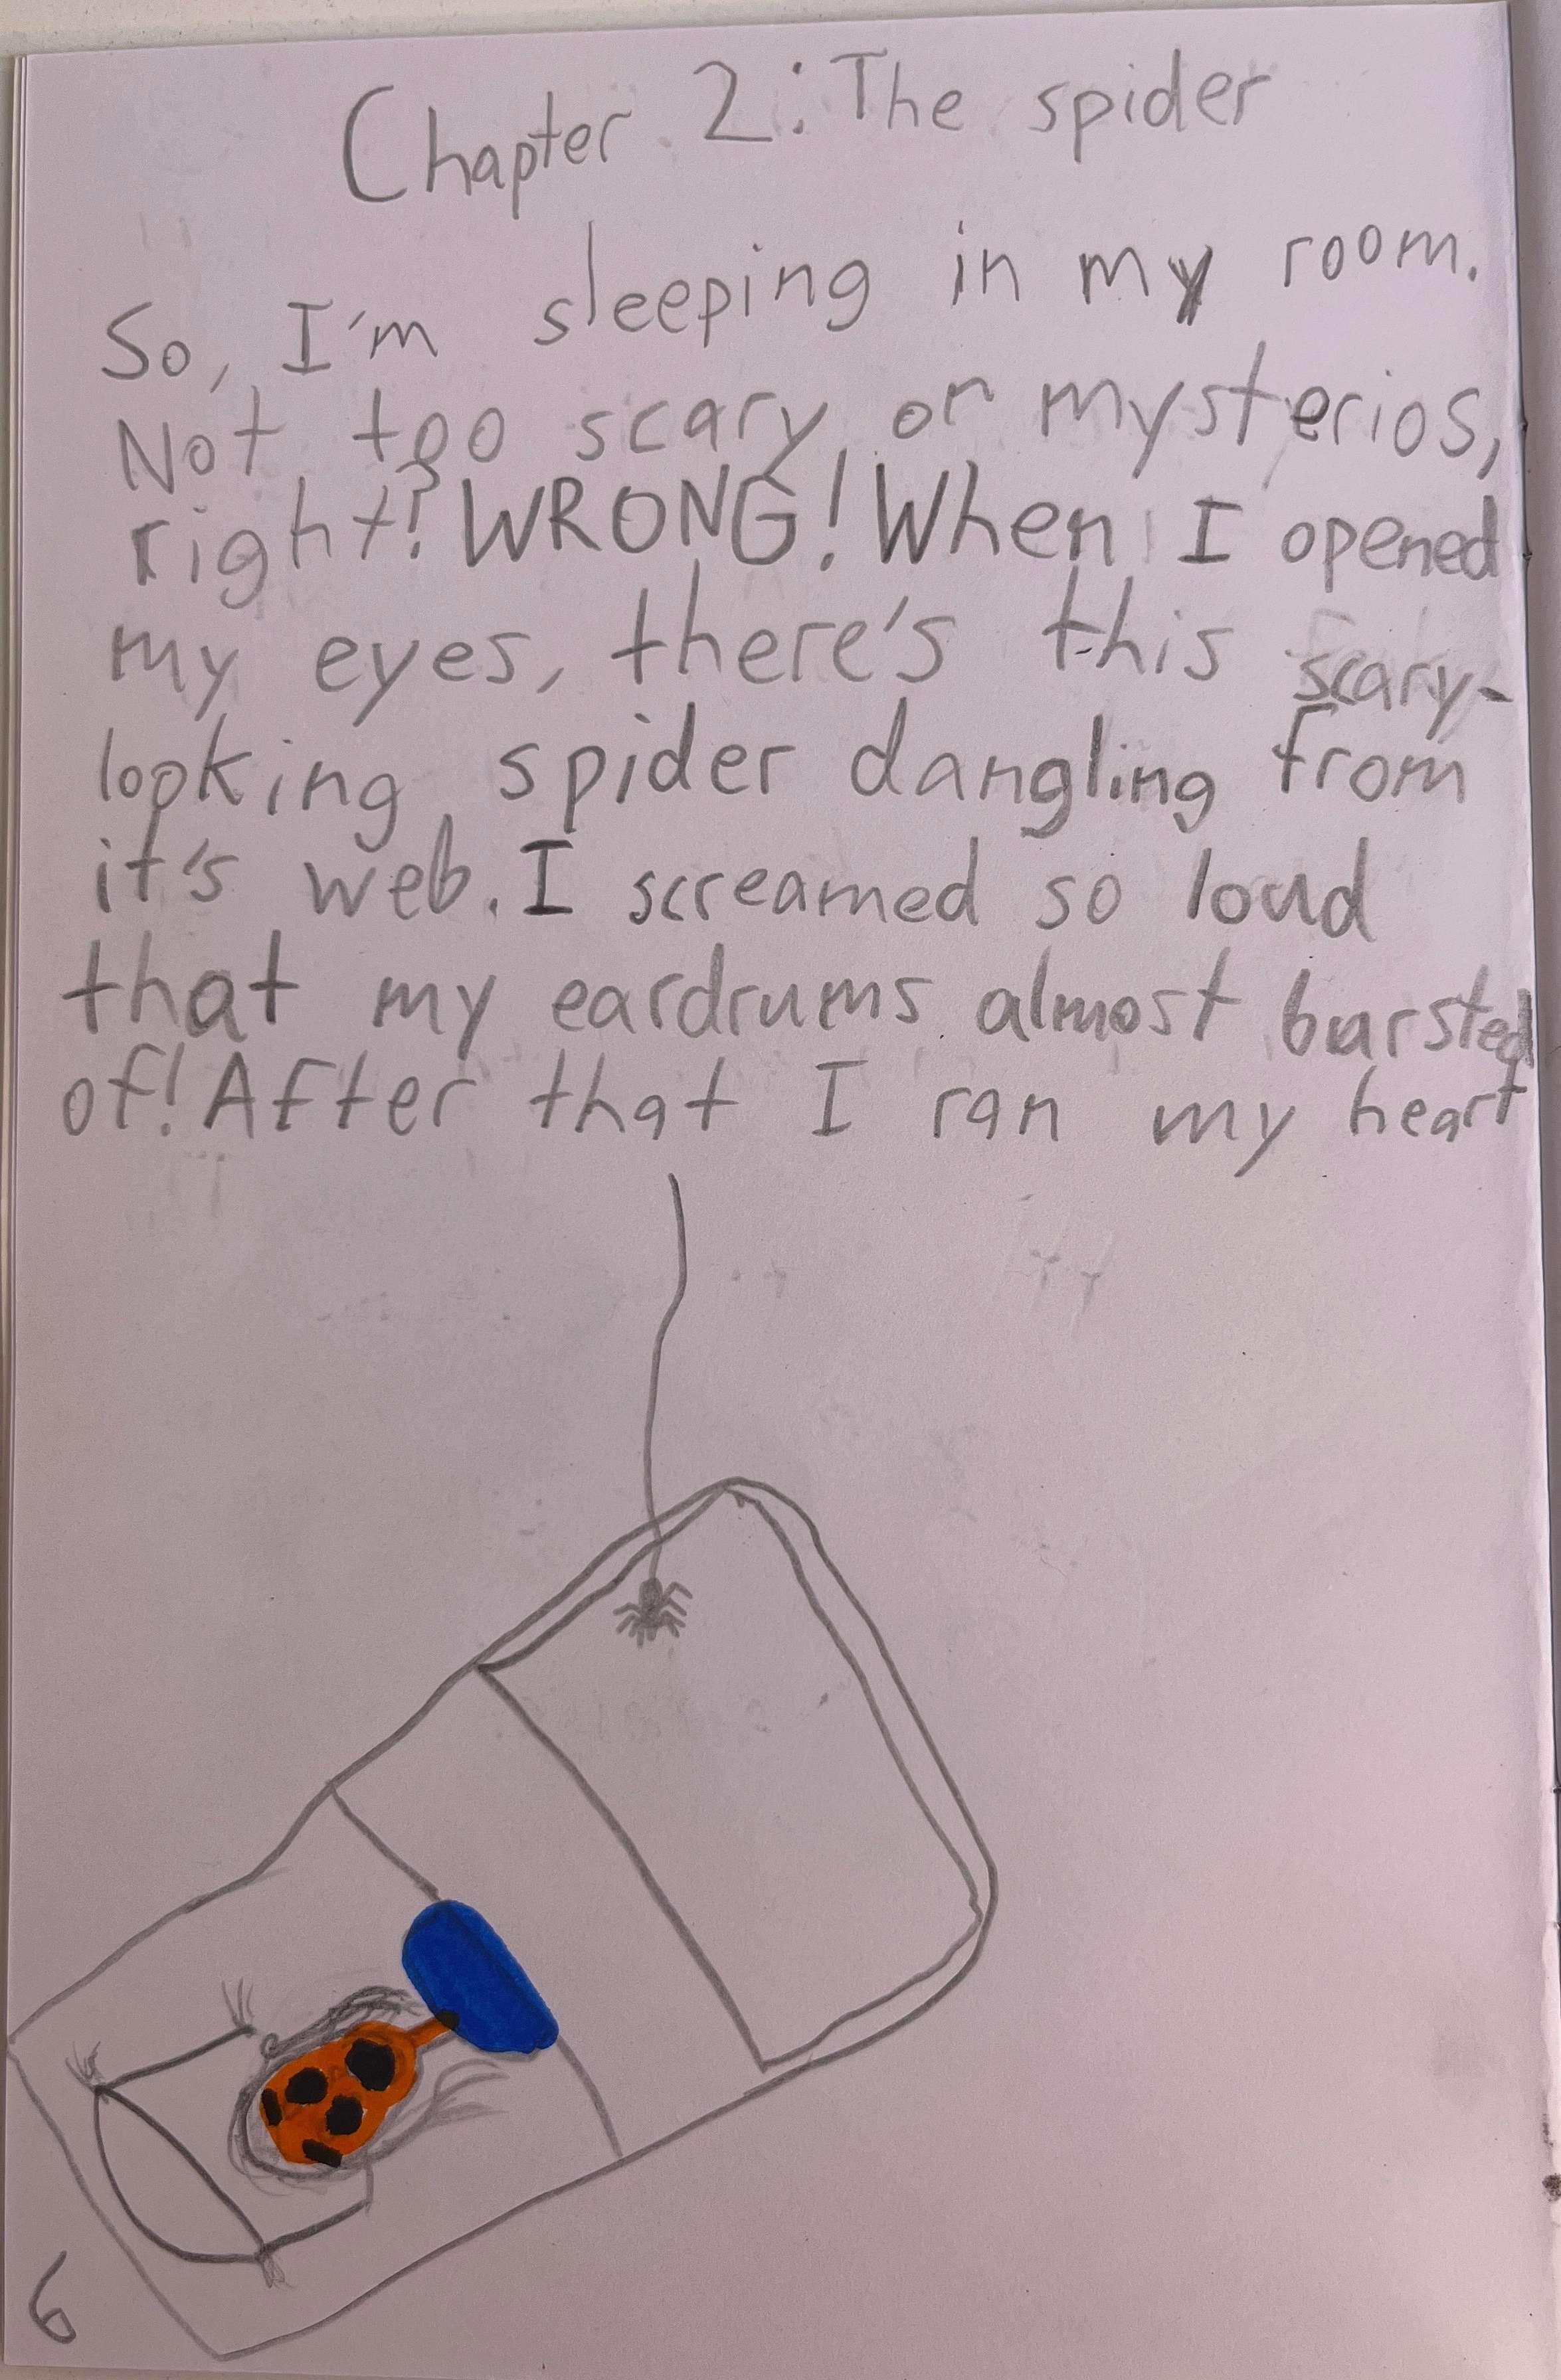 Chapter 2: The spider
So, I'm sleeping in my room.
Not too scary or mysterios,
right? WRONG! When I opened
my eyes, there's this scary-
looking spider dangling from
it's web. I screamed so loud
that my eardrums almost bursted
of! After that I ran my heart
6